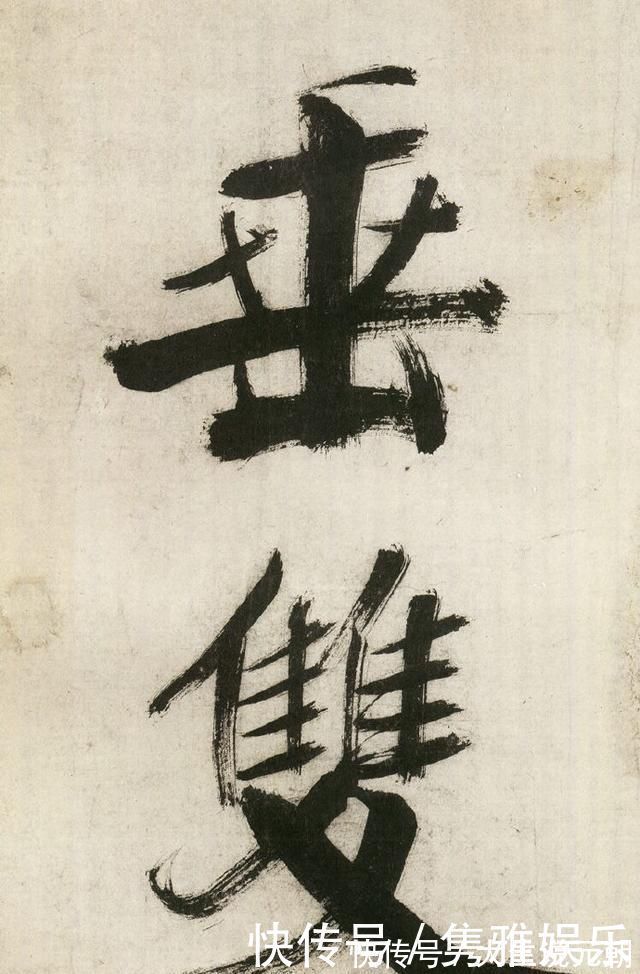 垂
雙
快传号/隽雅娱乐